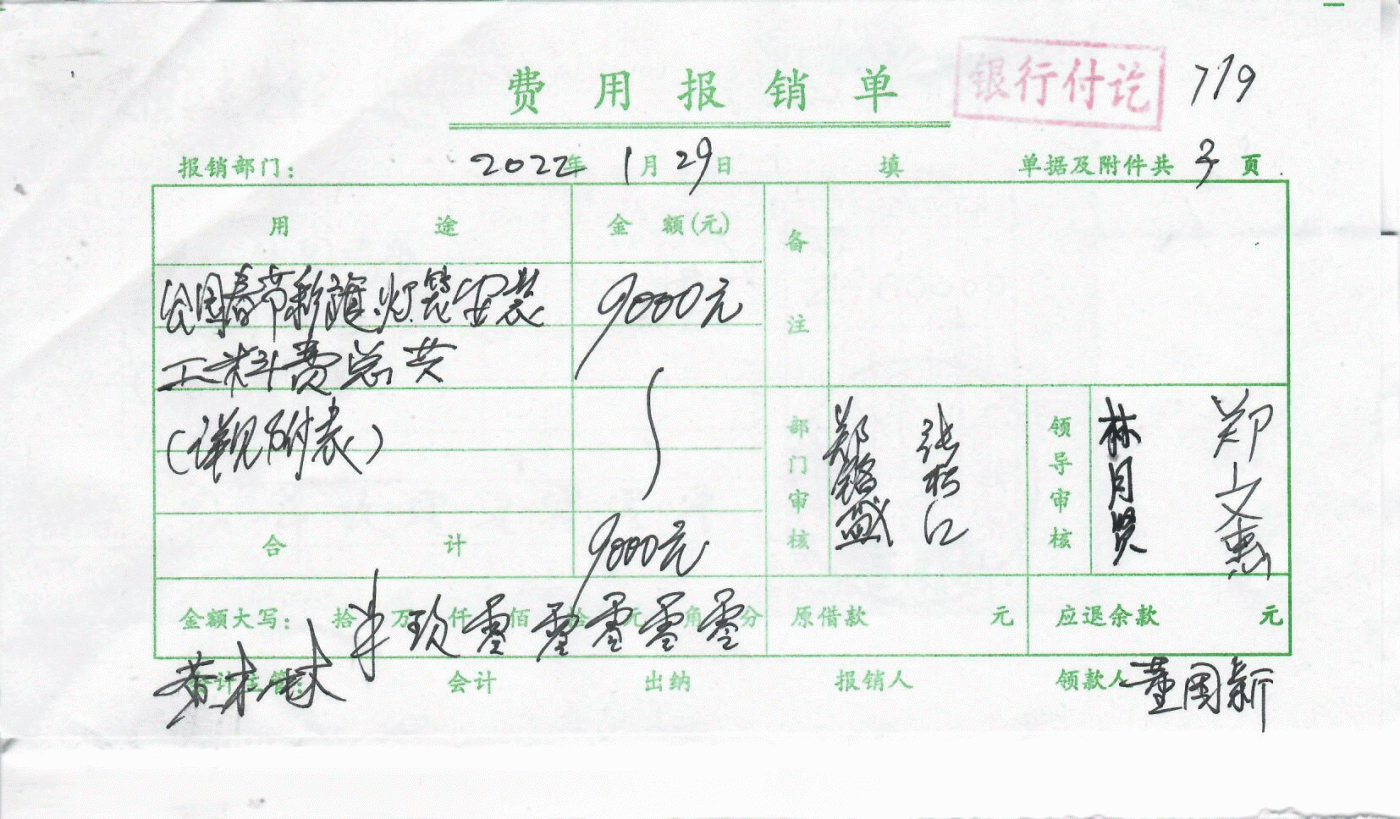 费用报销单 银行付讫 719
报销部门： 2022年 1月 29日 填 单据及附件共 3 页
用途 金额(元) 备注
公园春节彩旗、灯笼安装 9000元
工料费总共
(详见附表)
部门审核 郑 盛 张 江 领导审核 林月贤 郑文惠
合计 9000元
金额大写： 拾 万玖仟零佰零拾零元零角零分 原借款 元 应退余款 元
会计主管： 黄 会计 出纳 报销人 领款人 董国新